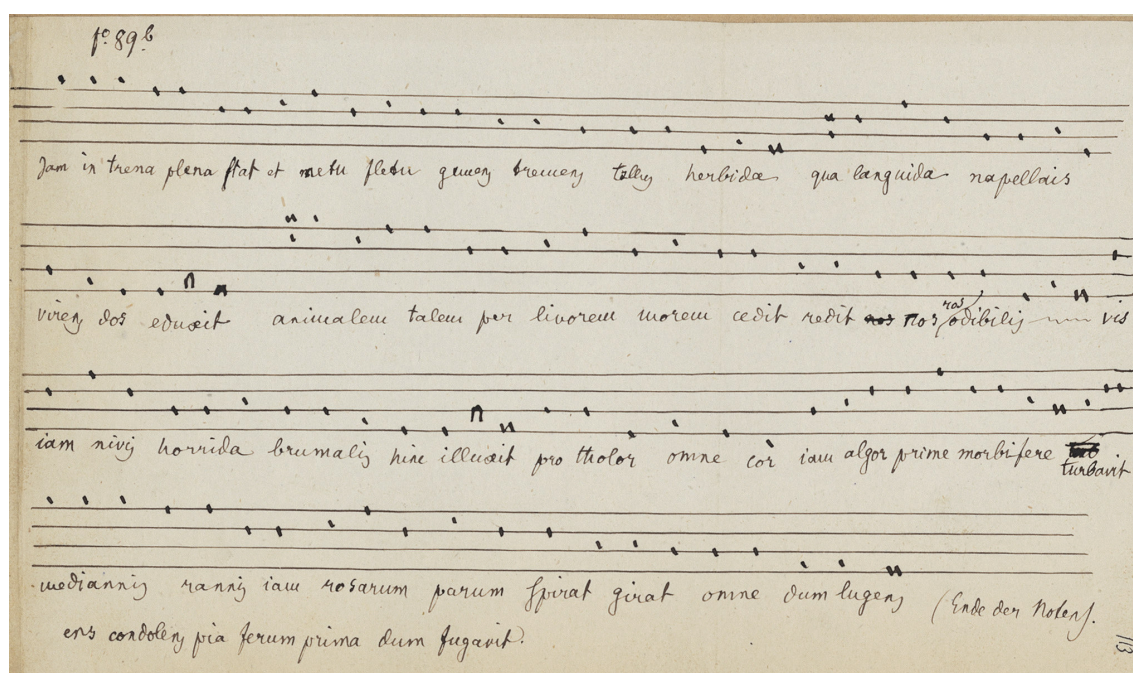 fo. 89.b
Jam in trena plena stat et metu fletu gemens tremens tellus herbida qua languida napellais
virens dos eduxit animalem talem per livorem morem cedit redit nos nos ros odibilis vis
iam nivis horrida brumalis hinc illuxit pro tholor omne cor iam algor prime morbifere turbavit
mediannis rannis iam rosarum parum spirat girat omne dum lugens (Ende der Noten).
ens condolens pia ferum prima dum fugavit.
113